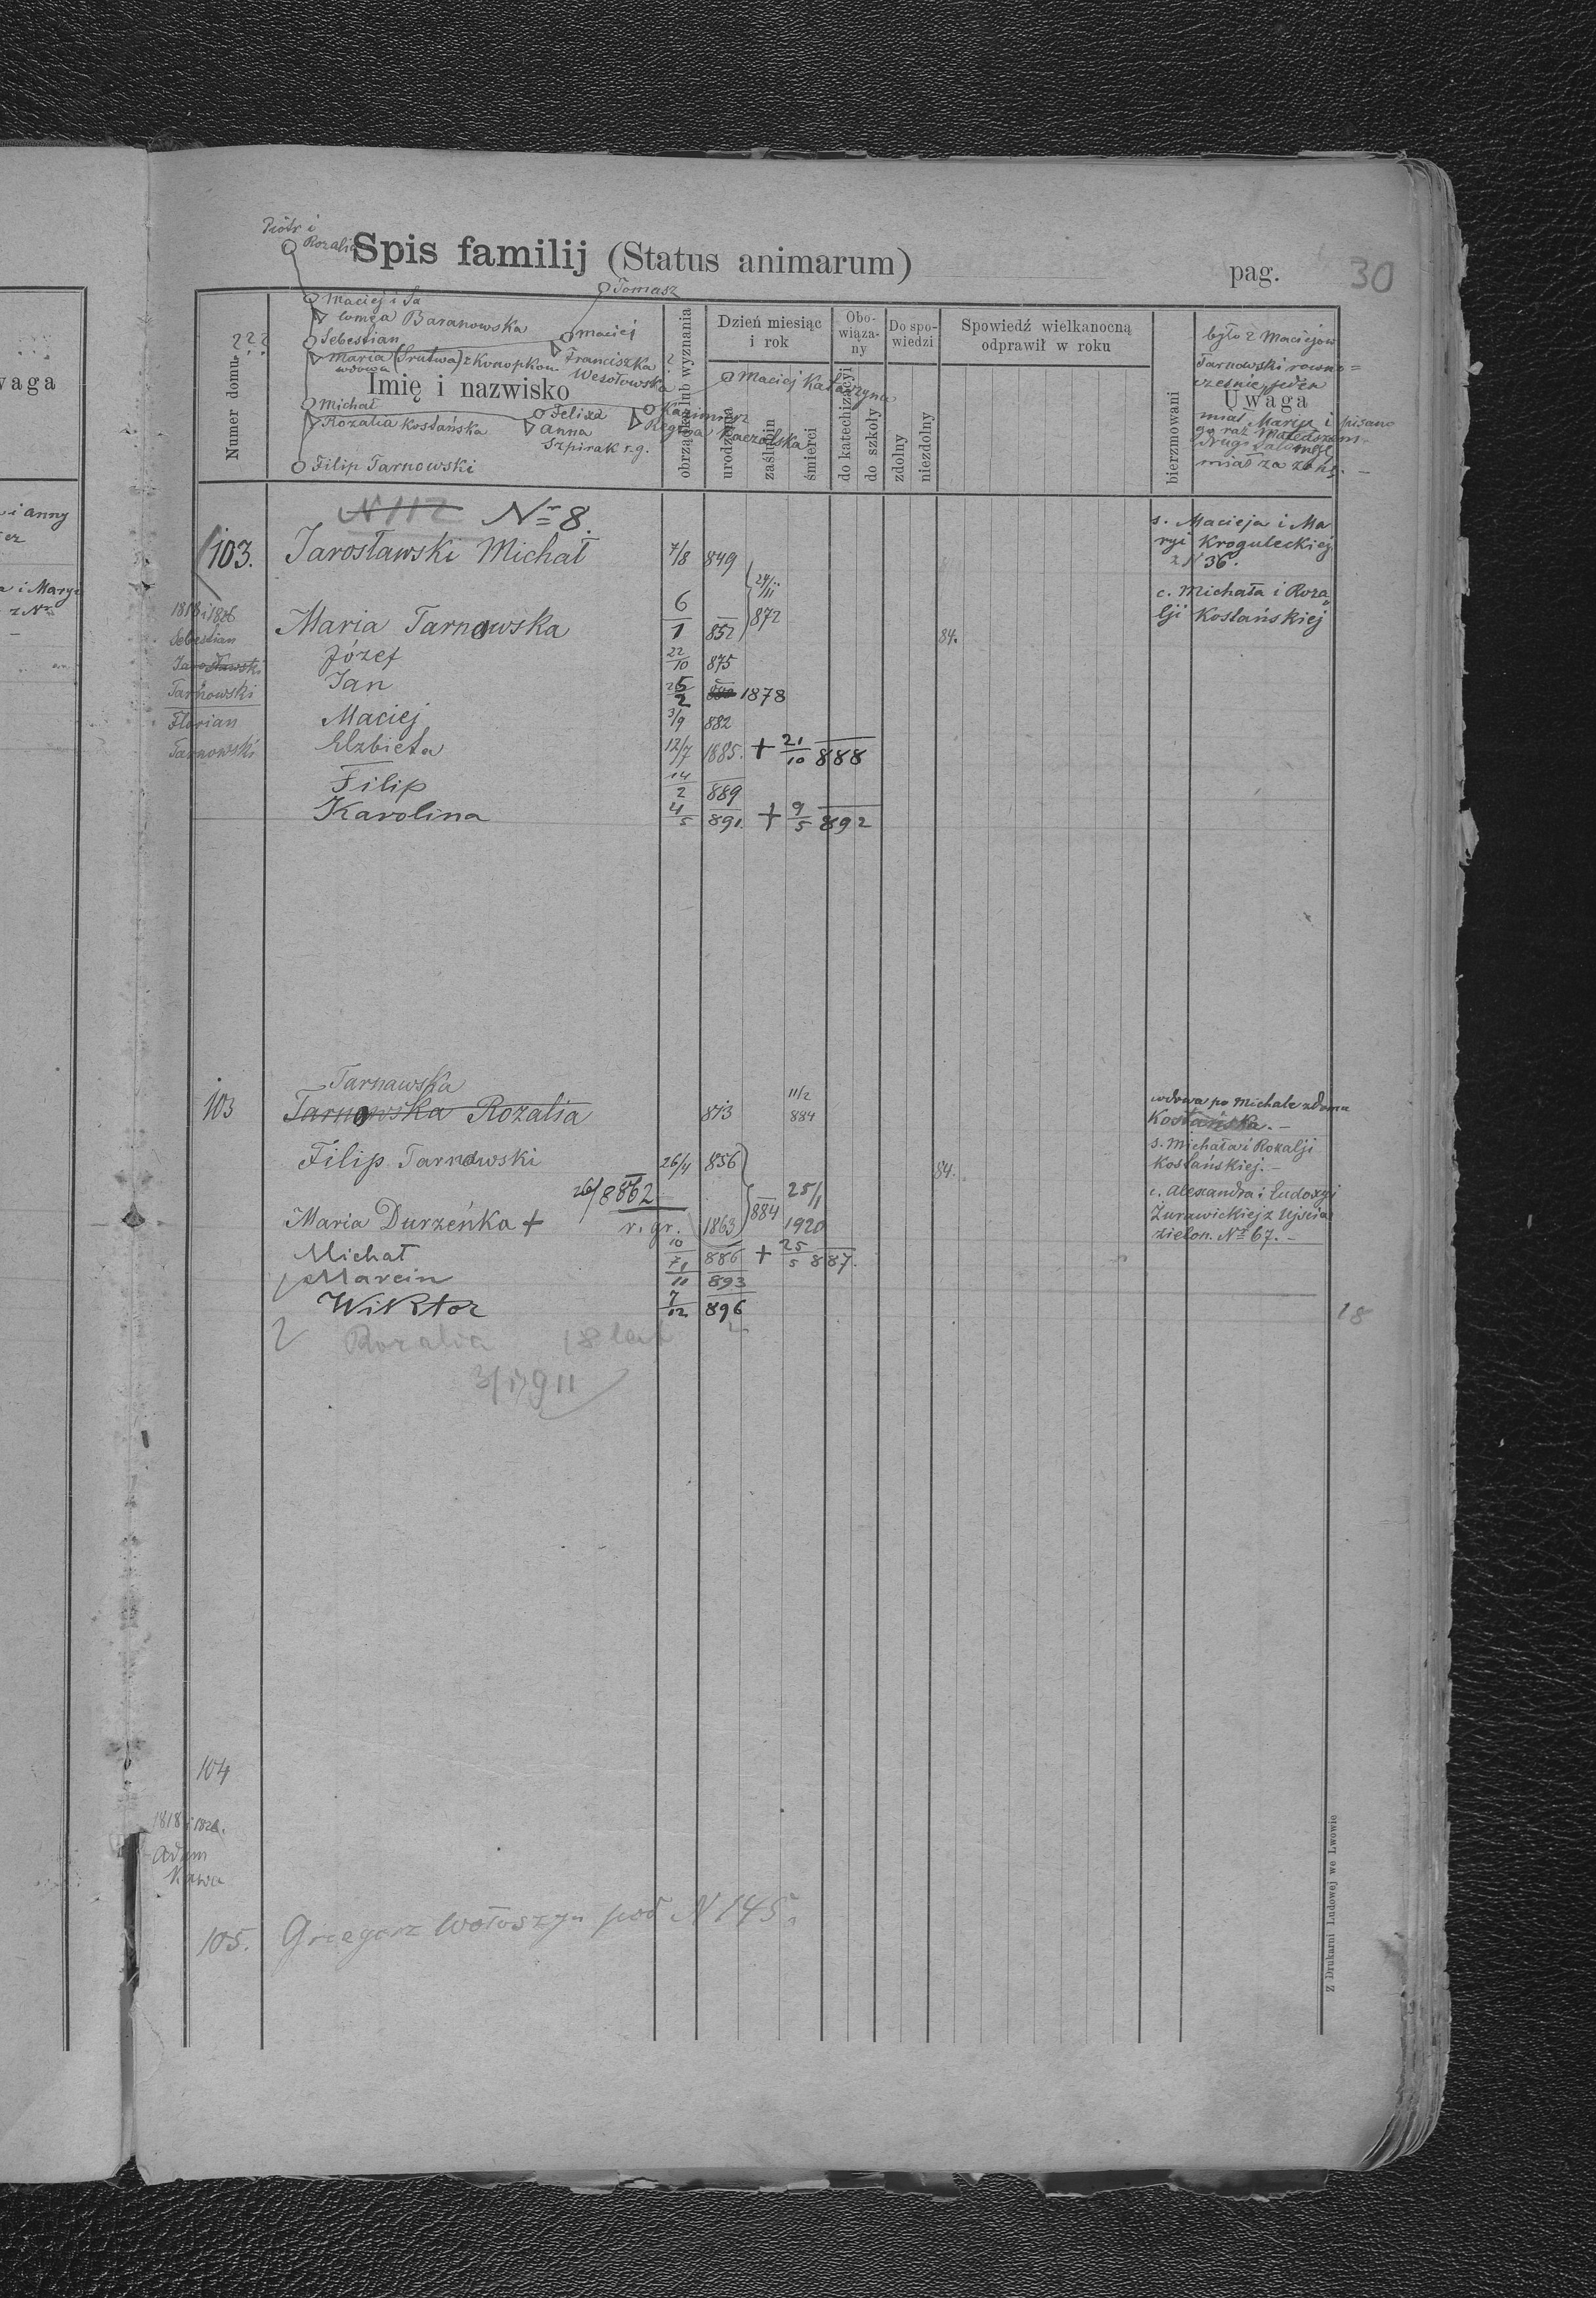 Piotr i
Rozalia
Spis familij (Status animarum)
pag. 30
Tomasz
Maciej i Sa
lomea Baranowska
Sebestian
Maria (Srutwa) z Konopków
wdowa
Maciej
Franciszka
Wesołowska
Michał
Rozalia Kostańska
Felixa
Anna
Szpirak r.g.
Kazimierz
Regina Kaczalska
Maciej Katarzyna
Filip Tarnowski
???
Numer domu
Imię i nazwisko
obrządku lub wyznania
Dzień miesiąc
i rok
urodzenia
zaślubin
śmierci
Obo-
wiąza-
ny
do katechizacyi
do szkoły
Do spo-
wiedzi
zdolny
niezdolny
Spowiedź wielkanocną
odprawił w roku
bierzmowani
Uwaga
było 2 Maciejów
Tarnowski rowno=
cześnie, jeden
miał Marię i pisano
go raz
drugi Salomeę
miał za żonę. —
N 112 Nr 8.
103. Jarosławski Michał 7/8 849
24/11 872
s. Macieja i Ma
ryi Kroguleckiej
z N 36.
1818 i 1826
Sebestian
Jarosławski
Tarnowski
Florian
Tarnowski
Maria Tarnowska 6/1 852 84.
c. Michała i Roza
lji Kostańskiej
Józef 22/10 875
Jan 25/2 1878
Maciej 3/9 882
Elzbieta 12/7 1885. + 21/10 888
Filip 14/2 889
Karolina 4/5 891. + 9/5 892
Tarnawska
103 Tarnowska Rozalia 813 11/2 884
wdowa po Michale z domu
Kostańska. —
Filip Tarnowski 26/4 856 84.
s. Michała i Rozalji
Kostańskiej. —
26/8 862
Maria Durzeńka + r. gr. 1863 884 25/1 1920
c. Alexandra i Eudoxyi
Zurawickiej z Ujscia
zielon. Nr 67. —
Michał 10/7 886 + 25/5 887.
Marcin 1/11 893
Wiktor 7/12 896
18
Rozalia 18 lat
3/1 911
104
1818 i 182
Adam
Kawa
105. Grzegorz Wołoszyn pod N 145
Z Drukarni Ludowej we Lwowie
waga
i Anny
a i Maryi
z Nr